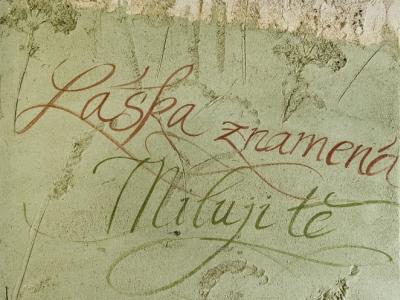 Láska znamená
Miluji tě